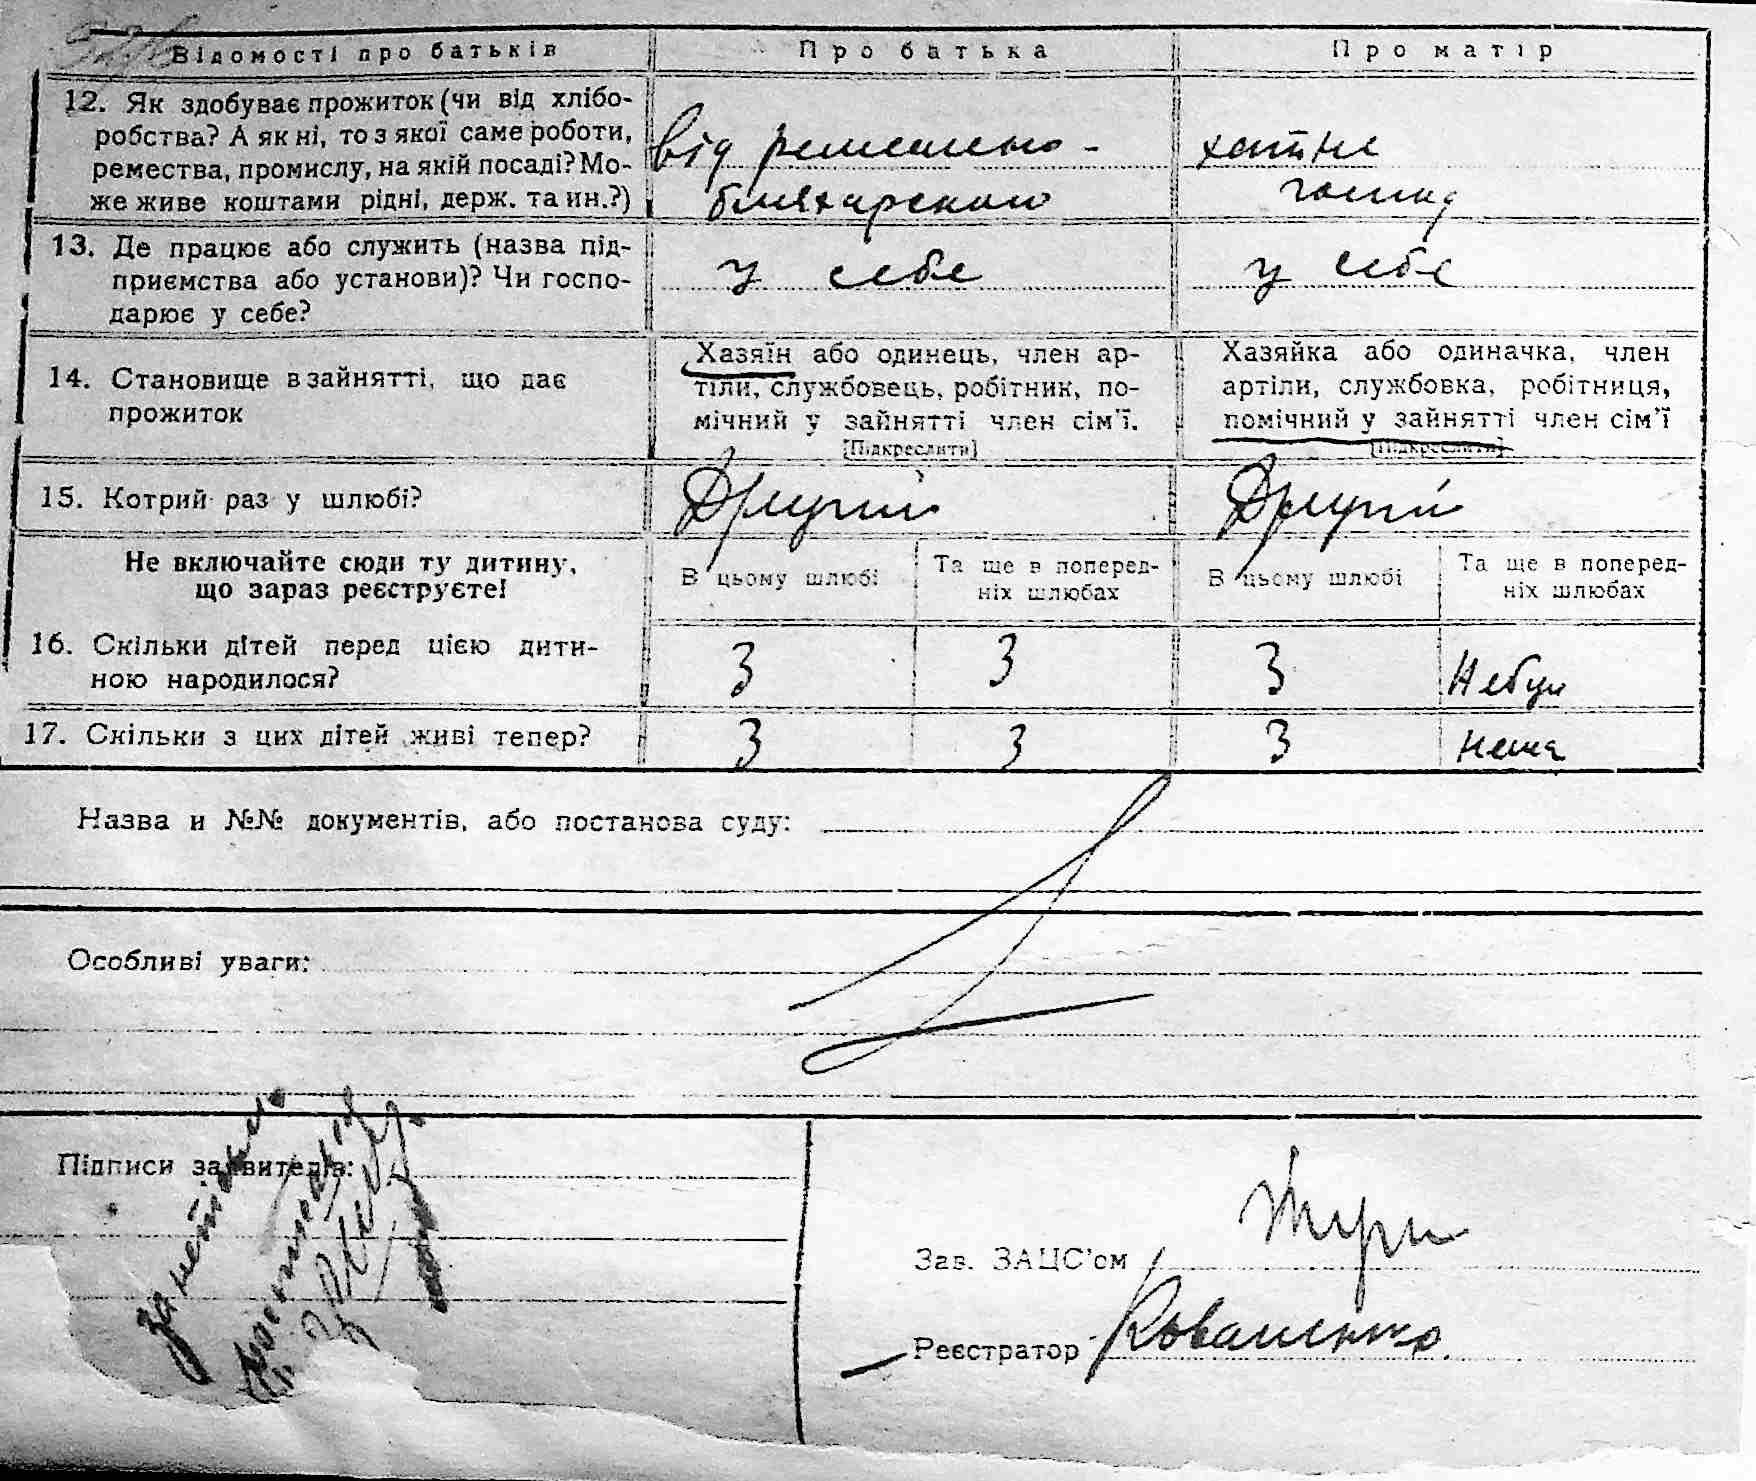 Відомості про батьків
Про батька
Про матір
12. Як здобуває прожиток (чи від хлібо-
робства? А як ні, то з якої саме роботи,
ремества, промислу, на якій посаді? Мо-
же живе коштами рідні, держ. та ин.?)
від
хатне
13. Де працює або служить (назва під-
приємства або установи)? Чи госпо-
дарює у себе?
у себе
у себе
14. Становище в зайнятті, що дає
прожиток
Хазяїн або одинець, член ар-
тіли, службовець, робітник, по-
мічний у зайнятті член сім'ї.
[Підкреслити]
Хазяйка або одиначка, член
артіли, службовка, робітниця,
помічний у зайнятті член сім'ї
[Підкреслити]
15. Котрий раз у шлюбі?
Другий
Другий
Не включайте сюди ту дитину,
що зараз реєструєте!
В цьому шлюбі
Та ще в поперед-
ніх шлюбах
В цьому шлюбі
Та ще в поперед-
ніх шлюбах
16. Скільки дітей перед цією дити-
ною народилося?
3
3
3
17. Скільки з цих дітей живі тепер?
3
3
3
нема
Назва и №№ документів, або постанова суду:
Особливі уваги:
Підписи заявителів:
Зав. ЗАЦС'ом
Реєстратор Коваленко